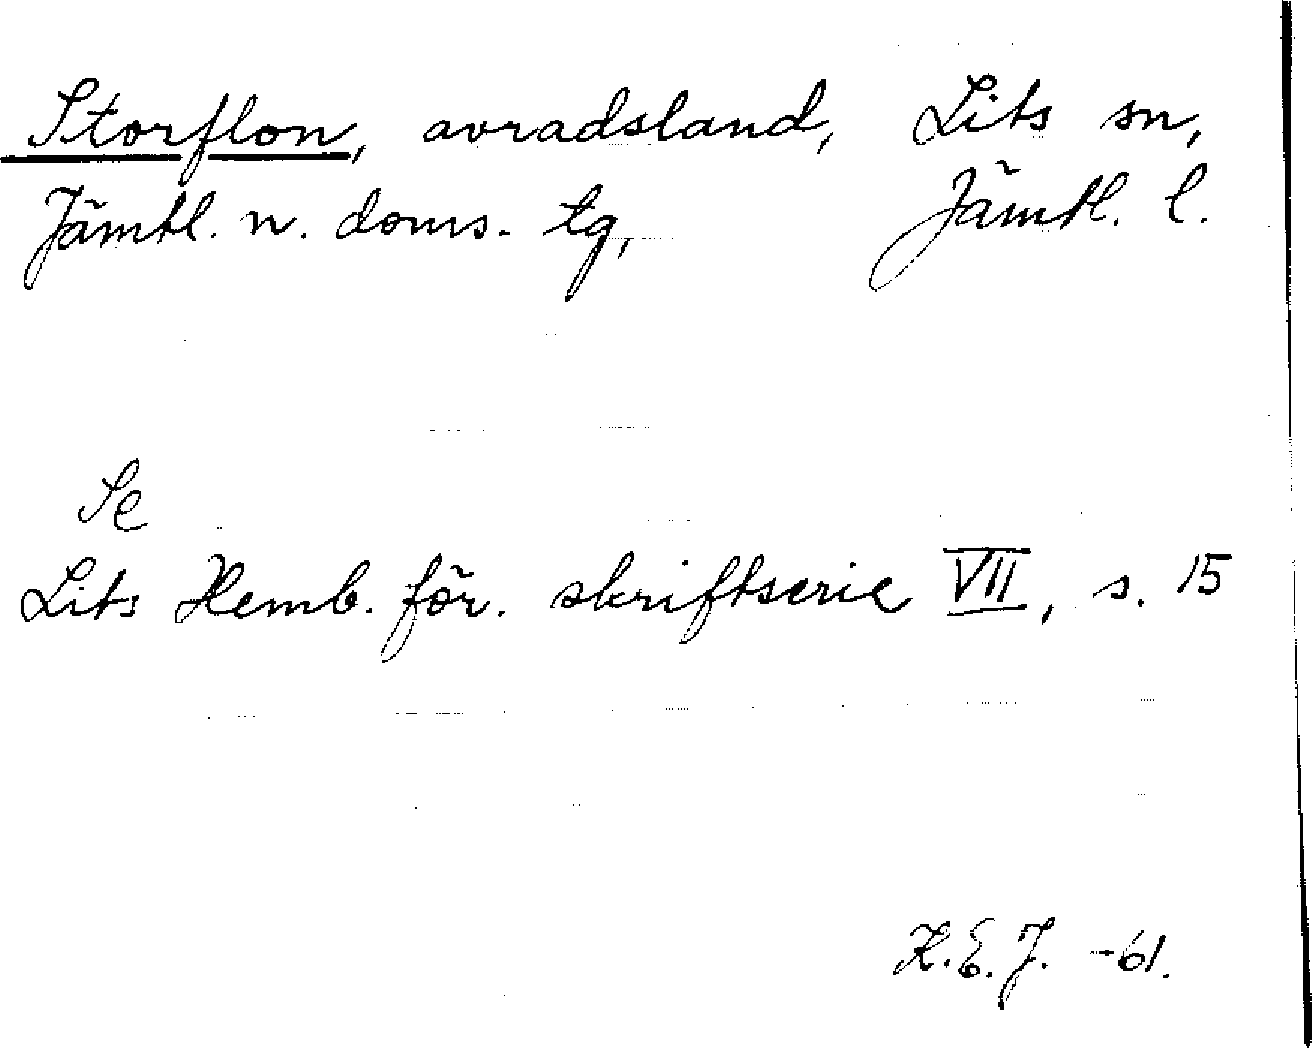 Storflon, avradsland, Lits sn,
Jämtl. n. doms. tg, Jämtl. l.
Se
Lits Hemb. för. skriftserie VII, s. 15
K.E.J. -61.